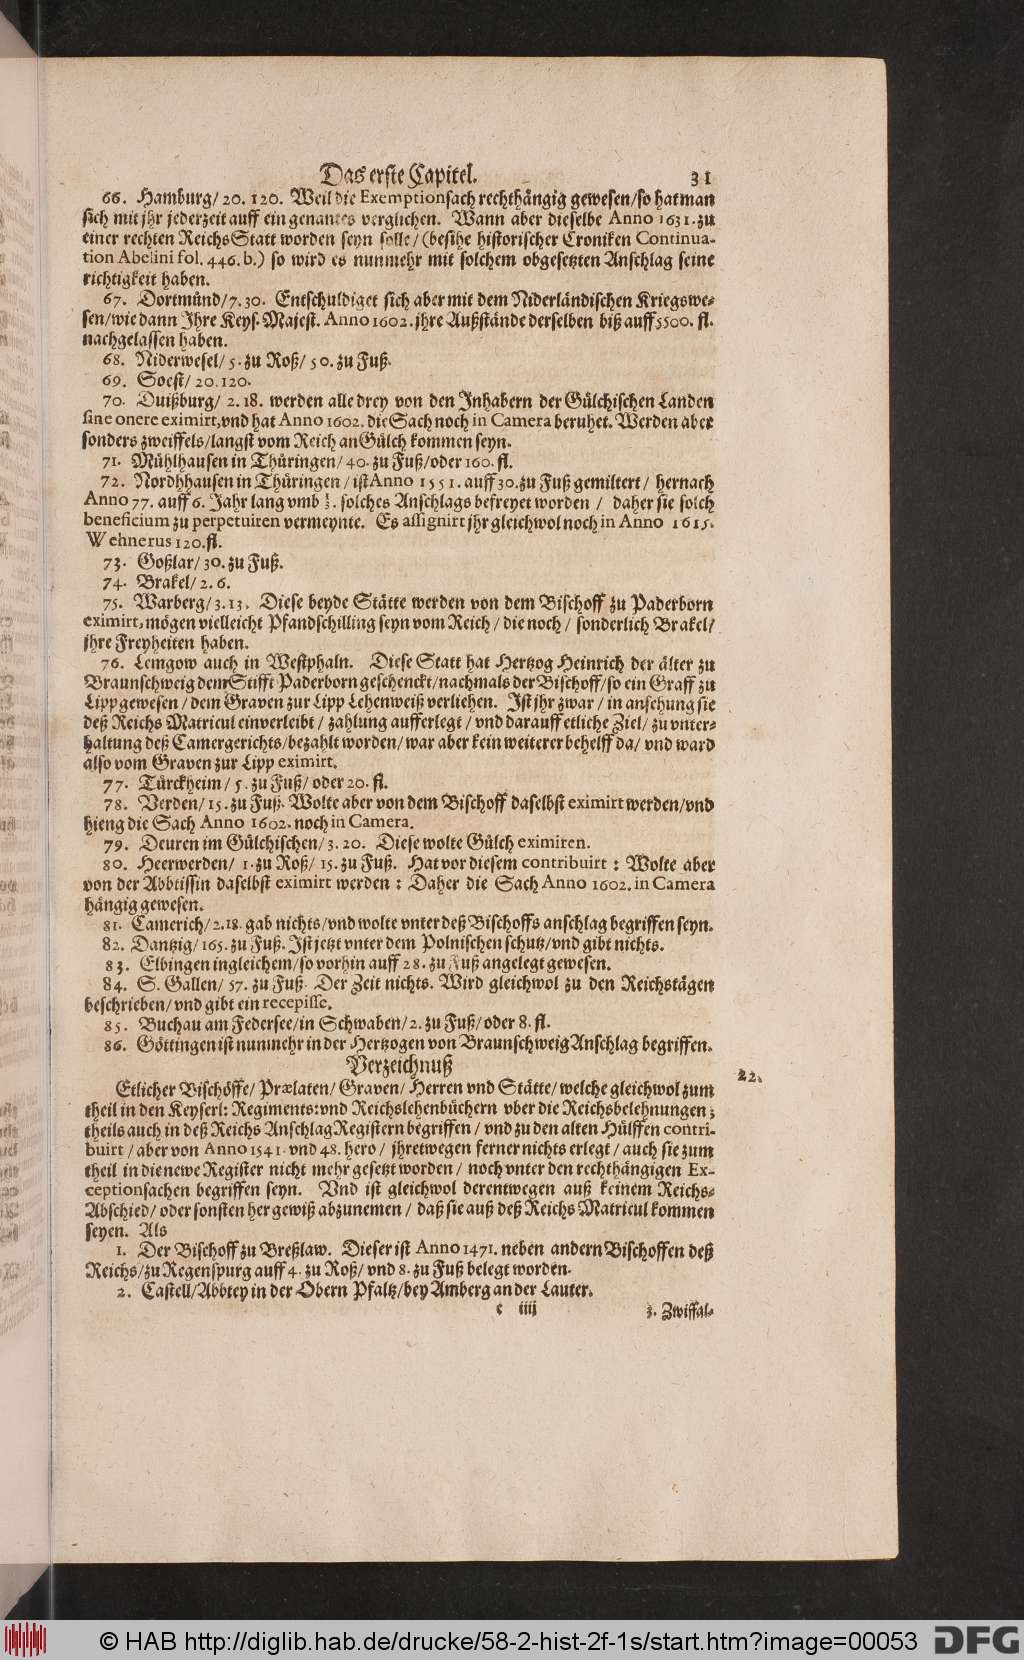 Das erste Capitel. 31
66. Hamburg/ 20. 120. Weil die Exemptionsach rechthängig gewesen/so hat man
sich mit jhr jederzeit auff ein genantes verglichen. Wann aber dieselbe Anno 1631. zu
einer rechten ReichsStatt worden seyn solle/ (besihe historischer Croniken Continua-
tion Abelini fol. 446. b.) so wird es nunmehr mit solchem obgesetzten Anschlag seine
richtigkeit haben.
67. Dortmünd/7. 30. Entschuldiget sich aber mit dem Niderländischen Kriegswe-
sen/wie dann Jhre Keys. Majest. Anno 1602. jhre Außstände derselben biß auff 5500. fl.
nachgelassen haben.
68. Niderwesel/ 5. zu Roß/ 50. zu Fuß.
69. Soest/ 20. 120.
70. Duißburg/ 2. 18. werden alle drey von den Jnhabern der Gülchischen Landen
sine onere eximirt, vnd hat Anno 1602. die Sach noch in Camera beruhet. Werden aber
sonders zweiffels/langst vom Reich an Gülch kommen seyn.
71. Mühlhausen in Thüringen/ 40. zu Fuß/oder 160. fl.
72. Nordhhausen in Thüringen/ ist Anno 1551. auff 30. zu Fuß gemiltert/ hernach
Anno 77. auff 6. Jahr lang vmb ⅓. solches Anschlags befreyet worden / daher sie solch
beneficium zu perpetuiren vermeynte. Es assignirt jhr gleichwol noch in Anno 1615.
Wehnerus 120. fl.
73. Goßlar/ 30. zu Fuß.
74. Brakel/ 2. 6.
75. Warberg/ 3. 13. Diese beyde Stätte werden von dem Bischoff zu Paderborn
eximirt, mögen vielleicht Pfandschilling seyn vom Reich / die noch / sonderlich Brakel/
jhre Freyheiten haben.
76. Lemgow auch in Westphaln. Diese Statt hat Hertzog Heinrich der älter zu
Braunschweig dem Stifft Paderborn geschenckt/ nachmals der Bischoff/so ein Graff zu
Lipp gewesen / dem Graven zur Lipp Lehenweiß verliehen. Jst jhr zwar / in ansehung sie
deß Reichs Matricul einverleibt / zahlung aufferlegt / vnd darauff etliche Ziel/ zu vnter-
haltung deß Camergerichts/bezahlt worden/ war aber kein weiterer behelff da/ vnd ward
also vom Graven zur Lipp eximirt.
77. Türckheim / 5. zu Fuß/ oder 20. fl.
78. Verden/ 15. zu Fuß. Wolte aber von dem Bischoff daselbst eximirt werden/vnd
hieng die Sach Anno 1602. noch in Camera.
79. Deuren im Gülchischen/ 3. 20. Diese wolte Gülch eximiren.
80. Heerwerden/ 1. zu Roß/ 15. zu Fuß. Hat vor diesem contribuirt : Wolte aber
von der Abbtissin daselbst eximirt werden : Daher die Sach Anno 1602. in Camera
hängig gewesen.
81. Camerich/2. 18. gab nichts/vnd wolte vnter deß Bischoffs anschlag begriffen seyn.
82. Dantzig/ 165. zu Fuß. Jst jetzt vnter dem Polnischen schutz/vnd gibt nichts.
83. Elbingen ingleichem/so vorhin auff 28. zu Fuß angelegt gewesen.
84. S. Gallen/ 57. zu Fuß. Der Zeit nichts. Wird gleichwol zu den Reichstägen
beschrieben/ vnd gibt ein recepisse.
85. Buchau am Federsee/in Schwaben/ 2. zu Fuß/ oder 8. fl.
86. Göttingen ist nunmehr in der Hertzogen von Braunschweig Anschlag begriffen.
Verzeichnuß
22.
Etlicher Bischöffe/ Prælaten/ Graven/ Herren vnd Stätte/ welche gleichwol zum
theil in den Keyserl: Regiments: vnd Reichslehenbüchern vber die Reichsbelehnungen;
theils auch in deß Reichs Anschlag Registern begriffen / vnd zu den alten Hülffen contri-
buirt / aber von Anno 1541. vnd 48. hero / jhretwegen ferner nichts erlegt / auch sie zum
theil in die newe Register nicht mehr gesetzt worden / noch vnter den rechthängigen Ex-
ceptionsachen begriffen seyn. Vnd ist gleichwol derentwegen auß keinem Reichs-
Abschied/ oder sonsten her gewiß abzunemen / daß sie auß deß Reichs Matricul kommen
seyen. Als
1. Der Bischoff zu Breßlaw. Dieser ist Anno 1471. neben andern Bischoffen deß
Reichs/zu Regenspurg auff 4. zu Roß/ vnd 8. zu Fuß belegt worden.
2. Castell/Abbtey in der Obern Pfaltz/bey Amberg an der Lauter.
c iiij 3. Zwiffal-
© HAB http://diglib.hab.de/drucke/58-2-hist-2f-1s/start.htm?image=00053 DFG